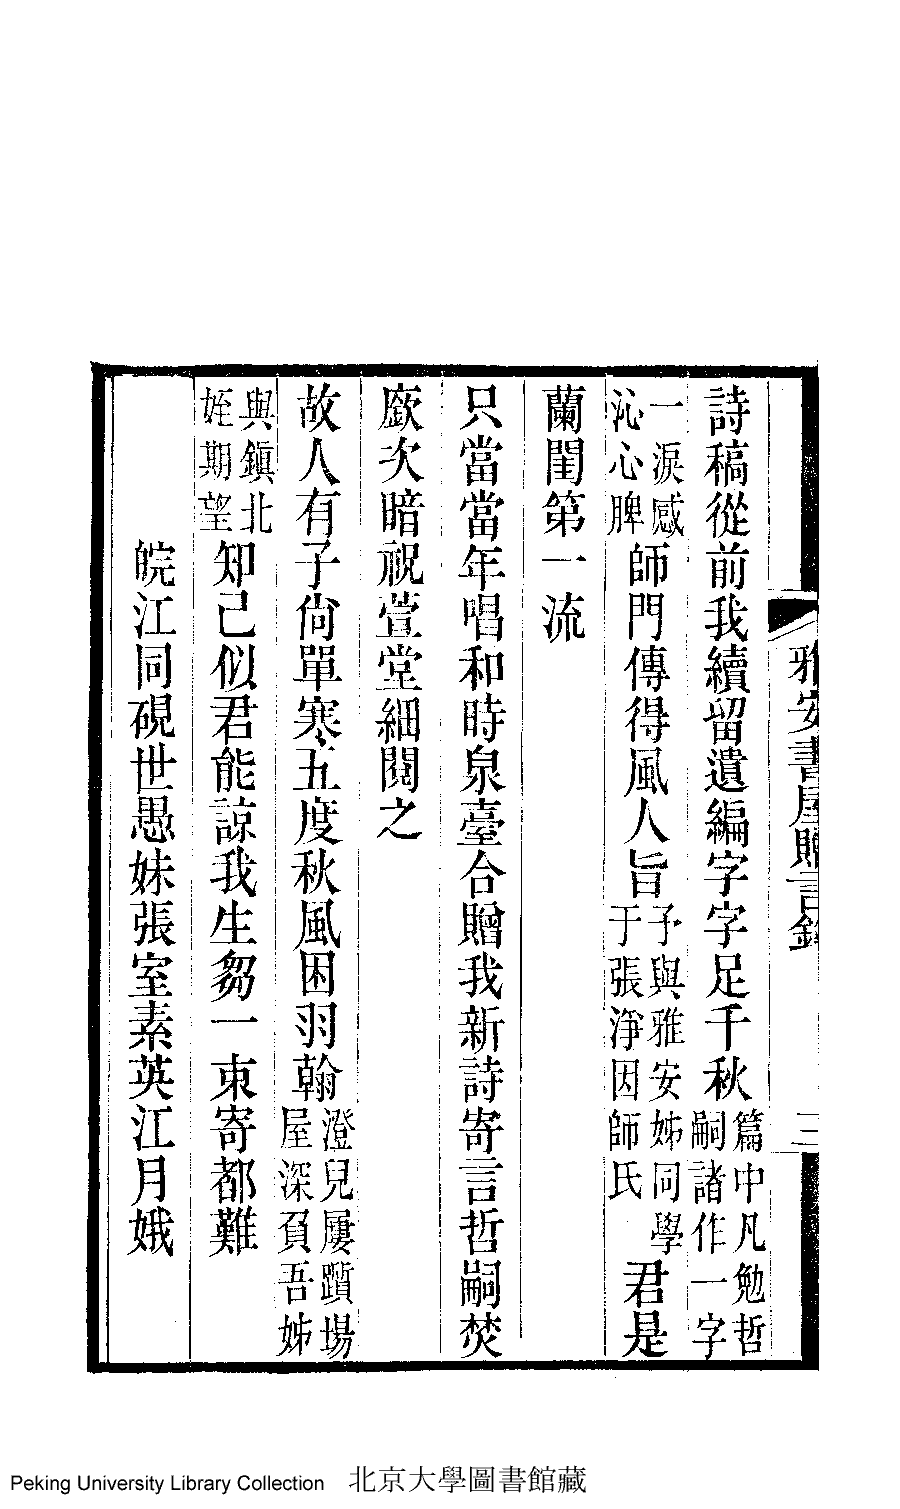 雅安書屋贈言錄 三
詩稿從前我續留遺編字字足千秋篇中凡勉哲嗣諸作一字
一淚感沁心脾師門傳得風人旨予與雅安姊同學于張淨因師氏君是
蘭閨第一流
只當當年唱和時泉臺合贈我新詩寄言哲嗣焚
廞次暗祝萱堂細閱之
故人有子尙單寒五度秋風困羽翰澄兒屢躓場屋深負吾姊
與鎮北姪期望知己似君能諒我生芻一束寄都難
皖江同硯世愚妹張室素英江月娥
Peking University Library Collection 北京大學圖書館藏